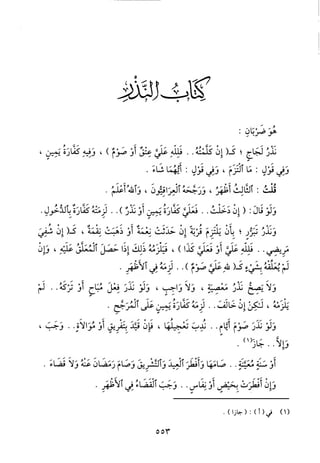 كِتَابُ النَّذْرِ
هُوَ ضَرْبَانِ :
نَذْرُ لَجَاجٍ ؛ كَـ( إِنْ كَلَّمْتُهُ.. فَلِلَّهِ عَلَيَّ عِتْقٌ أَوْ صَوْمٌ ) ، وَفِيهِ كَفَّارَةُ يَمِينٍ ،
وَفِي قَوْلٍ : مَا الْتَزَمَ ، وَفِي قَوْلٍ : أَيُّهُمَا شَاءَ .
قُلْتُ : الثَّالِثُ أَظْهَرُ ، وَرَجَّحَهُ الْعِرَاقِيُّونَ ، وَاللهُ أَعْلَمُ .
وَلَوْ قَالَ : ( إِنْ دَخَلْتُ.. فَعَلَيَّ كَفَّارَةُ يَمِينٍ أَوْ نَذْرٍ ).. لَزِمَتْهُ كَفَّارَةٌ بِالدُّخُولِ .
وَنَذْرُ تَبَرُّرٍ ؛ بِأَنْ يَلْتَزِمَ قُرْبَةً إِنْ حَدَثَتْ نِعْمَةٌ أَوْ ذَهَبَتْ نِقْمَةٌ ، كَـ( إِنْ شُفِيَ
مَرِيضِي.. فَلِلَّهِ عَلَيَّ أَوْ فَعَلَيَّ كَذَا ) ، فَيَلْزَمُهُ ذَلِكَ إِذَا حَصَلَ الْمُعَلَّقُ عَلَيْهِ ، وَإِنْ
لَمْ يُعَلِّقْهُ بِشَيْءٍ كَـ( للهِ عَلَيَّ صَوْمٌ ).. لَزِمَهُ فِي الأَظْهَرِ .
وَلاَ يَصِحُّ نَذْرُ مَعْصِيَةٍ ، وَلاَ وَاجِبٍ ، وَلَوْ نَذَرَ فِعْلَ مُبَاحٍ أَوْ تَرْكَهُ.. لَمْ
يَلْزَمْهُ ، لَكِنْ إِنْ خَالَفَ.. لَزِمَهُ كَفَّارَةُ يَمِينٍ عَلَى الْمُرَجَّحِ .
وَلَوْ نَذَرَ صَوْمَ أَيَّامٍ.. نُدِبَ تَعْجِيلُهَا ، فَإِنْ قَيَّدَ بِتَفْرِيقٍ أَوْ مُوَالاَةٍ.. وَجَبَ ،
وَإِلاَّ.. جَازَ(١) .
أَوْ سَنَةٍ مُعَيَّنَةٍ.. صَامَهَا وَأَفْطَرَ الْعِيدَ وَالتَّشْرِيقَ وَصَامَ رَمَضَانَ عَنْهُ وَلاَ قَضَاءَ .
وَإِنْ أَفْطَرَتْ بِحَيْضٍ أَوْ نِفَاسٍ.. وَجَبَ الْقَضَاءُ فِي الأَظْهَرِ .
(١) في ( أ ) : ( جازا ) .
٥٥٣